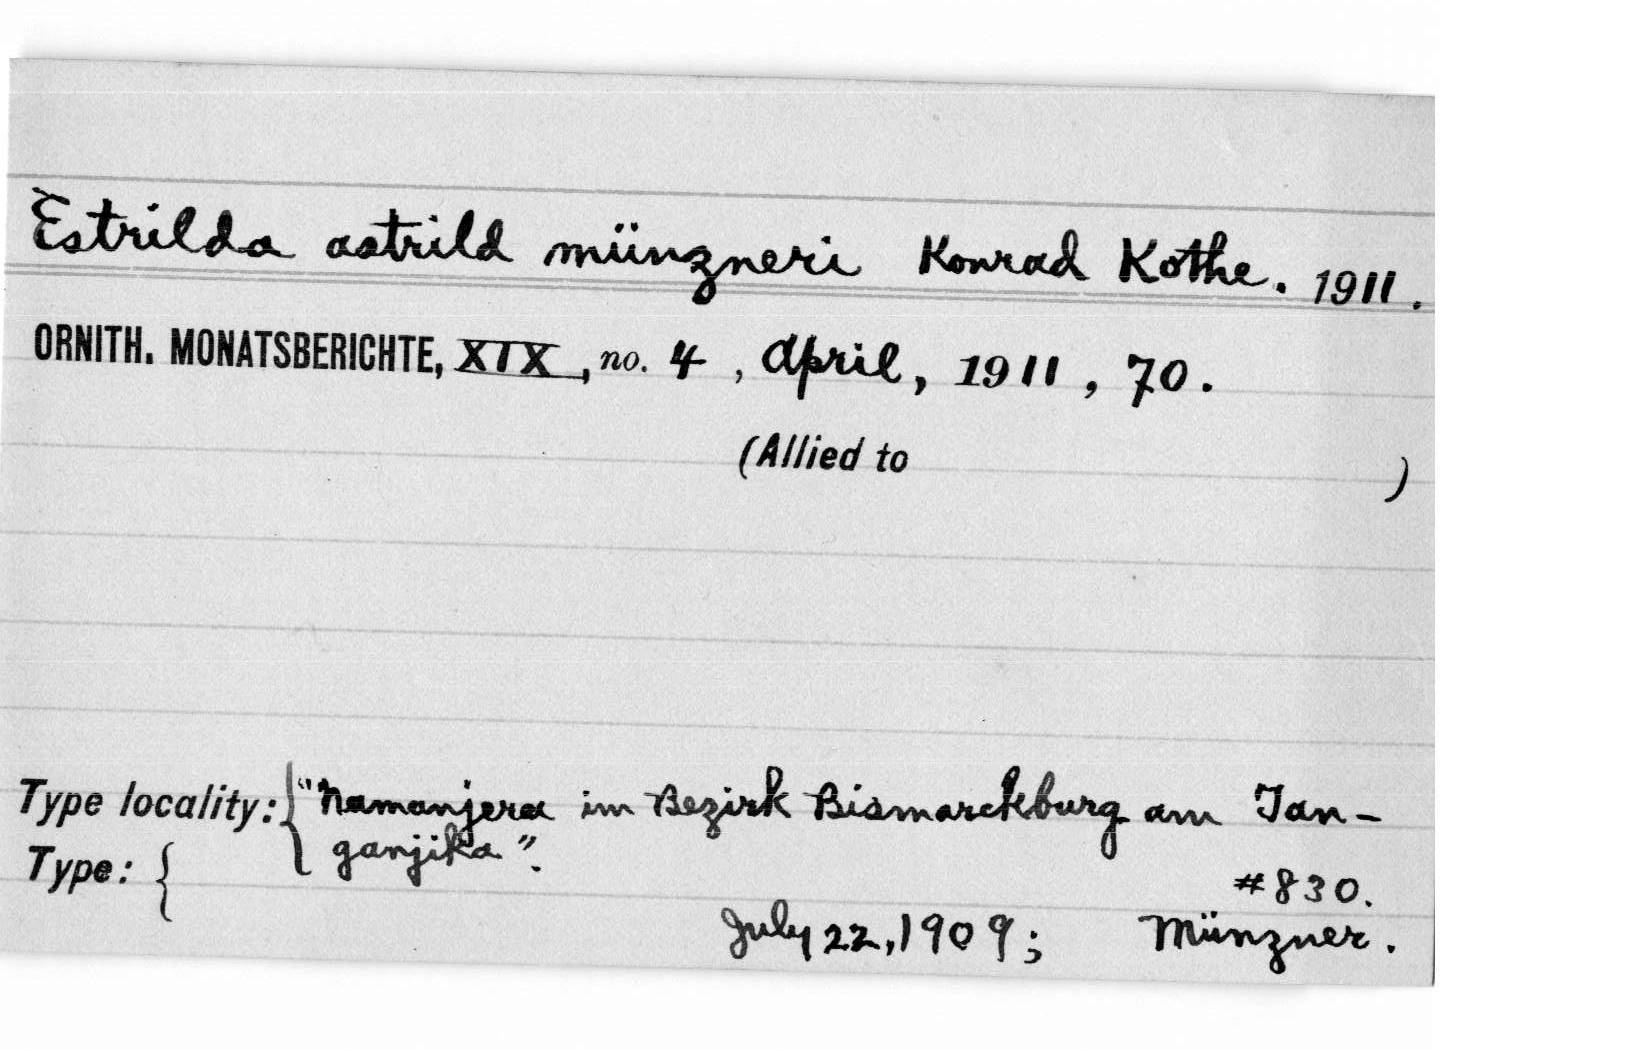 Estrilda astrild münzneri Konrad Kothe. 1911.
ORNITH. MONATSBERICHTE, XIX, no. 4, April, 1911, 70.
(Allied to )
Type locality: { "Namanjera im Bezirk Bismarckburg am Tan-
ganjika".
Type: {
#830.
July 22, 1909; Münzner.